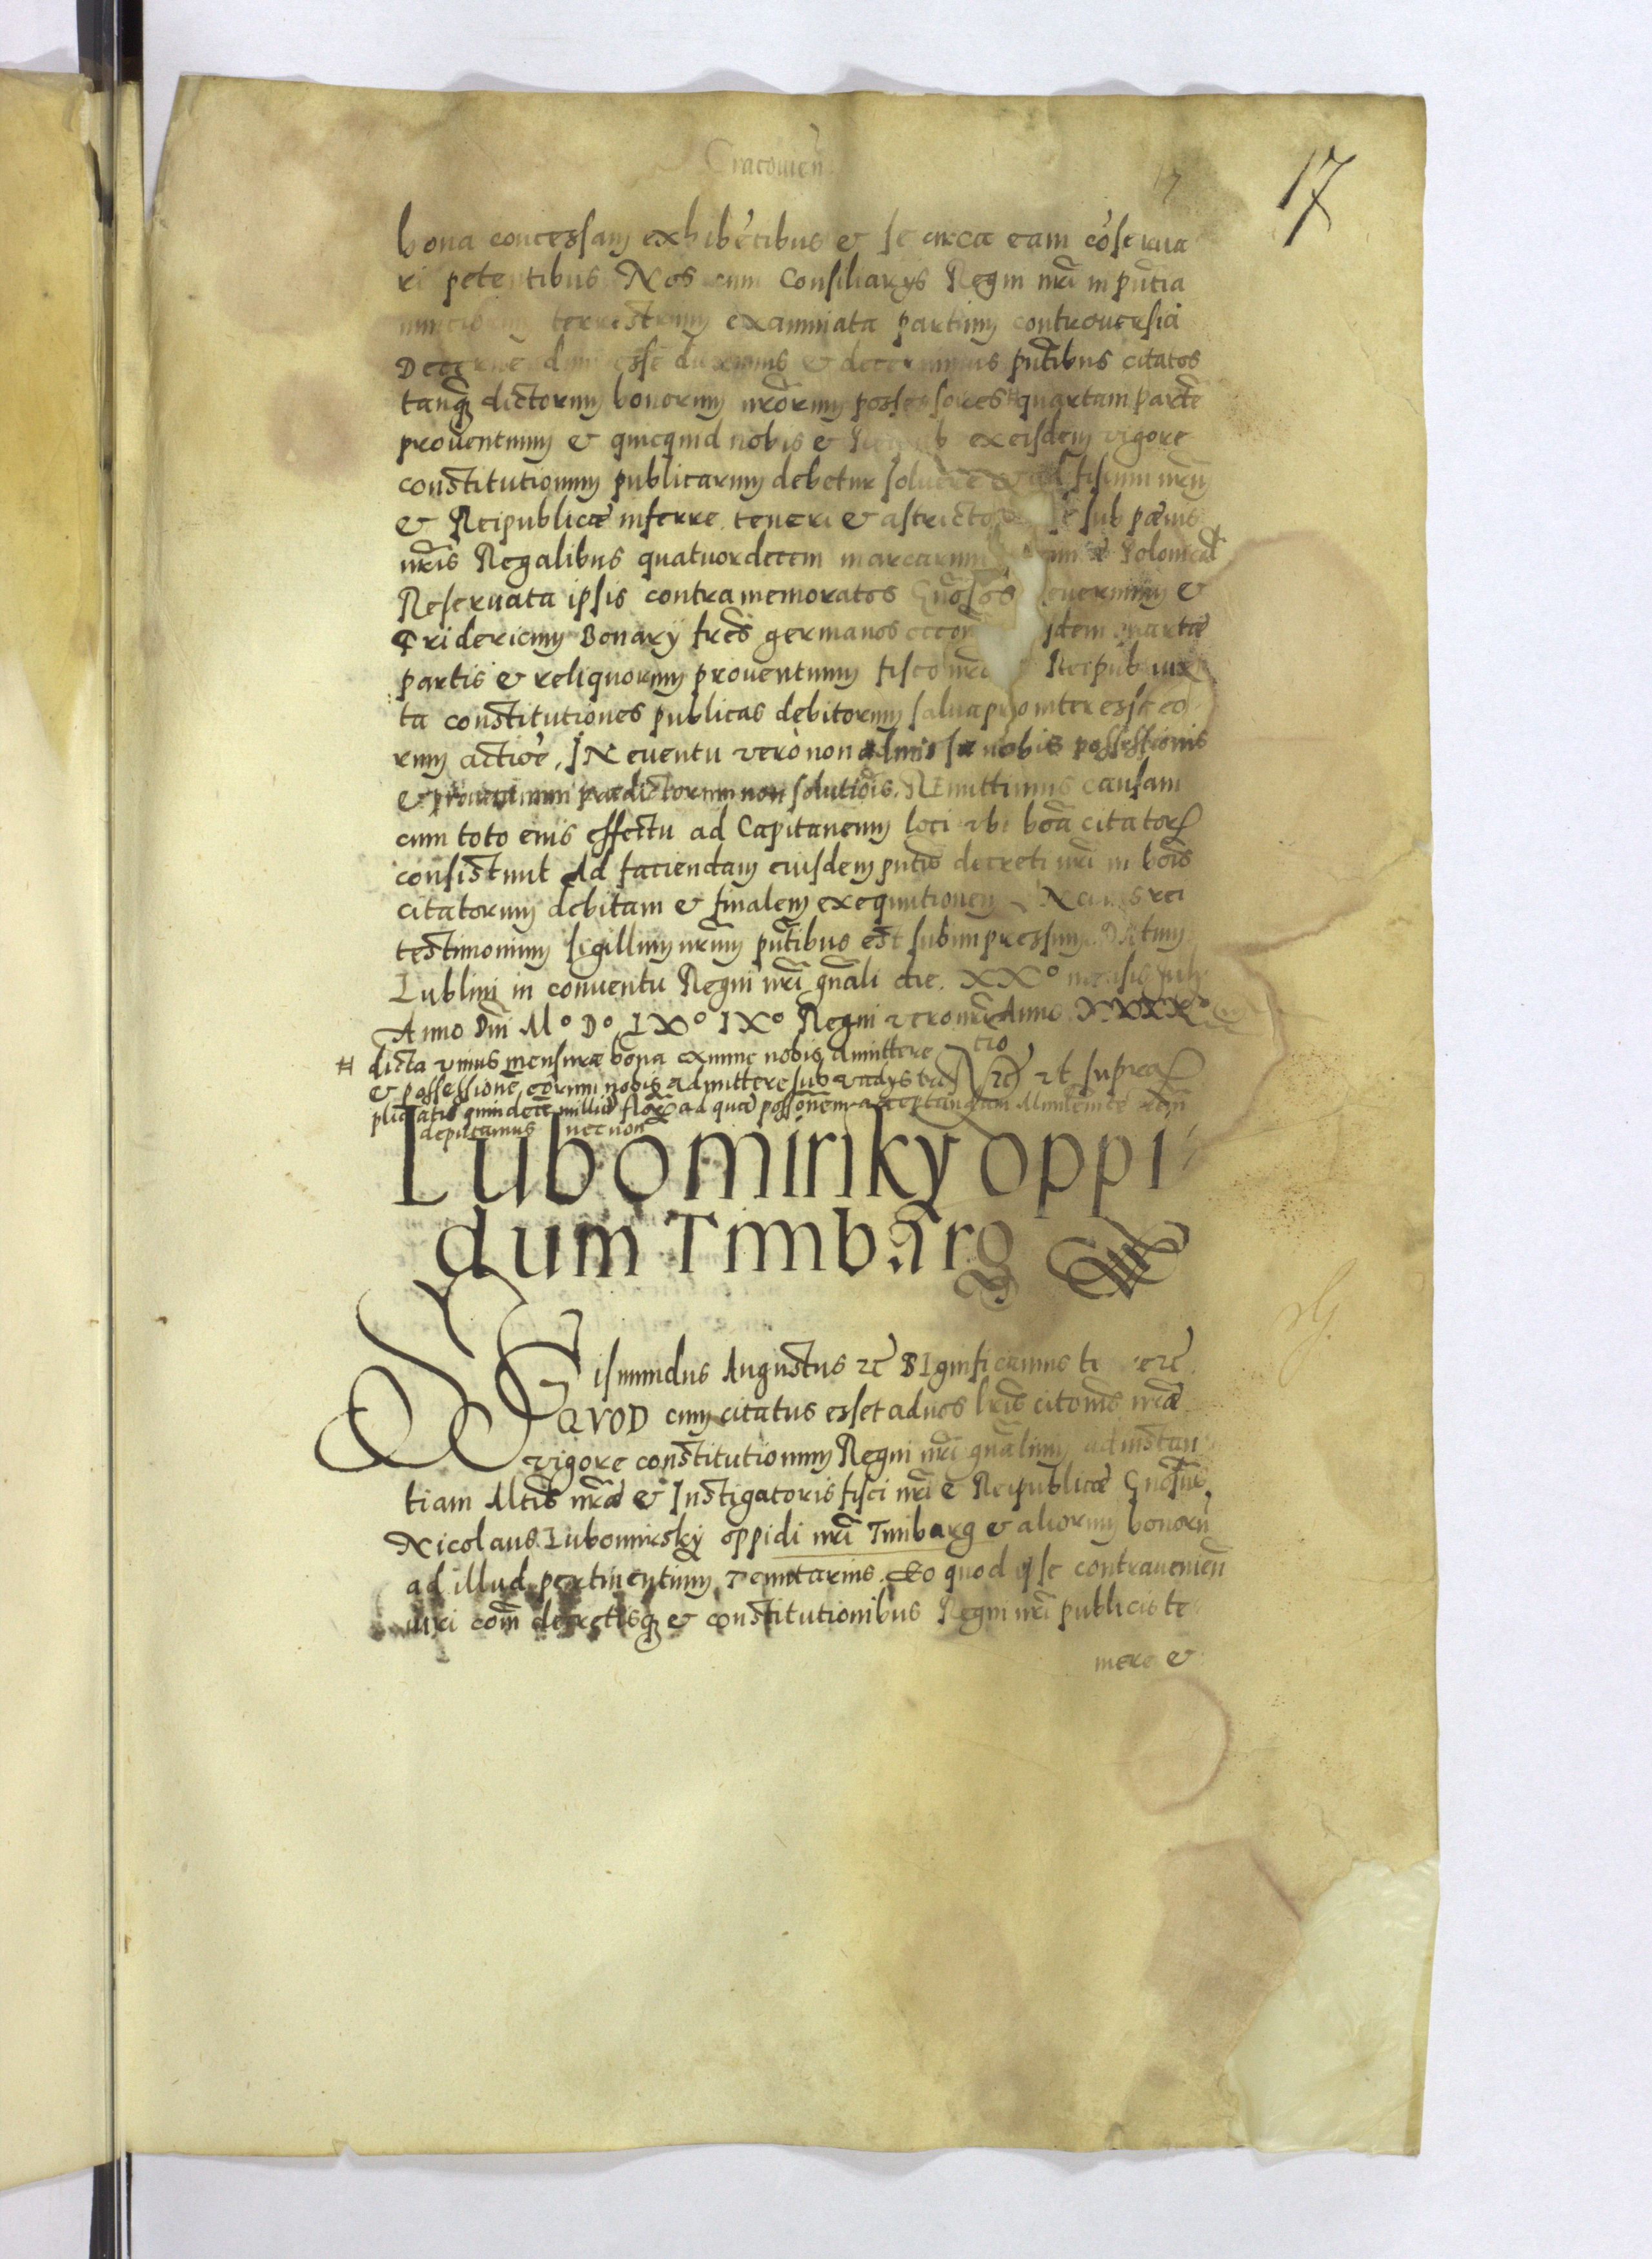 Cracouien̄
17
17
bona concessam exhibētibus & se circa eam cōserua
ri petentibus Nos cum Consiliarijs Regni nr̄i in pn̄tia
nunciorum terrestrium examinata partium controuersia
Decernendum esse duximus & decernimus pn̄tibus citatos
tanq̄ dictorum bonorum nr̄orum possessores # quartam partē
prouentuum & quicquid nobis & Reipub ex eisdem vigore
constitutionum publicarum debetur soluere & ad fiscum nr̄um
& Reipublicæ inferre teneri & astrictos sub pœnis
nr̄is Regalibus quatuordecem marcarum Polonical
Reseruata ipsis contra memoratos Gn̄osos Seuerinum &
Fridericum Bonary fr̄es germanos idem quartæ
partis & reliquorum prouentuum fisco nr̄o Reipub iux
ta constitutiones publicas debitorum salua pro interesse eo
rum actiōe, IN euentu verò non admissæ nobis possessionis
& prouentuum prædictorum non solutiōis. REmittimus causam
cum toto eius effectu ad Capitaneum loci vbi bōa citator
consistunt Ad faciendam eiusdem pn̄tis decreti nr̄i in bōis
citatorum debitam & finalem exequutionem IN cuius rei
testimonium sigillum nr̄um pn̄tibus est subimpressum. DAtum
Lublini in conuentu Regni nr̄i gn̄ali die. XXº mensis July
Anno Dn̄i Mº Dº LXº IXº Regni vero nr̄i Anno XXXXº
# dicta vnius mensuræ bona exnunc nobis dimittere
& possessionē eorum nobis admittere sub vadys tri ut supra
plicatis quindecē milliū flor ad quā possōnem acceptandam
deputamus necnon
Lubomirſky oppi
dum Timbarg
SIGismundus Augustus &c̄ SIgnificamus &c̄
QVOD cum citatus esset ad nos lr̄is citōnis nr̄æ
vigore constitutionum Regni nr̄i gn̄alium ad instan
tiam Mtis nr̄æ & Instigatoris fisci nr̄i & Reipublicæ Gn̄osus
Nicolaus Lubomirsky oppidi nr̄i Timbarg & aliorum bonorū
ad illud pertinentium Tenutarius. Eo quod ipse contraueniēn
iuri com̄ decretisq̄ & constitutionibus Regni nr̄i publicis te
mere &